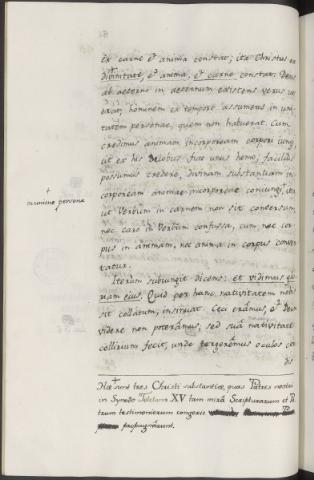 ex carne et anima constat; ita Christus ex
divinitate, et anima, et carne constat. Deus
ab aeterno in aeternum existens verus
erat, hominem ex tempore assumpsit in uni-
tatem personae, quem non habuerat. Cum
credimus animam incorpoream corpori iung,
ut ex his duobus fiat unus homo, facilius
possumus credere, divinam substantiam in-
corpoream animae incorporeae coniungi,
ut Verbum in carnem non sit conversum
nec caro in Verbum confussa, cum nec cor-
pus in animam, nec anima in corpus conver-
tatur.
Iterum subiungit dicens: et vidimus glo-
riam eius. Quid per hanc nativitatem nobis
sit collatum, insinuat. Ceci eramus, et Deum
videre non poteramus, sed sua nativitate
collirium fecit, unde tergeremus oculos cor-
dis
+
in unione persone
Hae sunt tres Christi substantiae, quas Patres nostri
in Synodo Toletana XV tam mira Scripturarum et Pa-
trum testimoniorum congerie
propugnarunt.